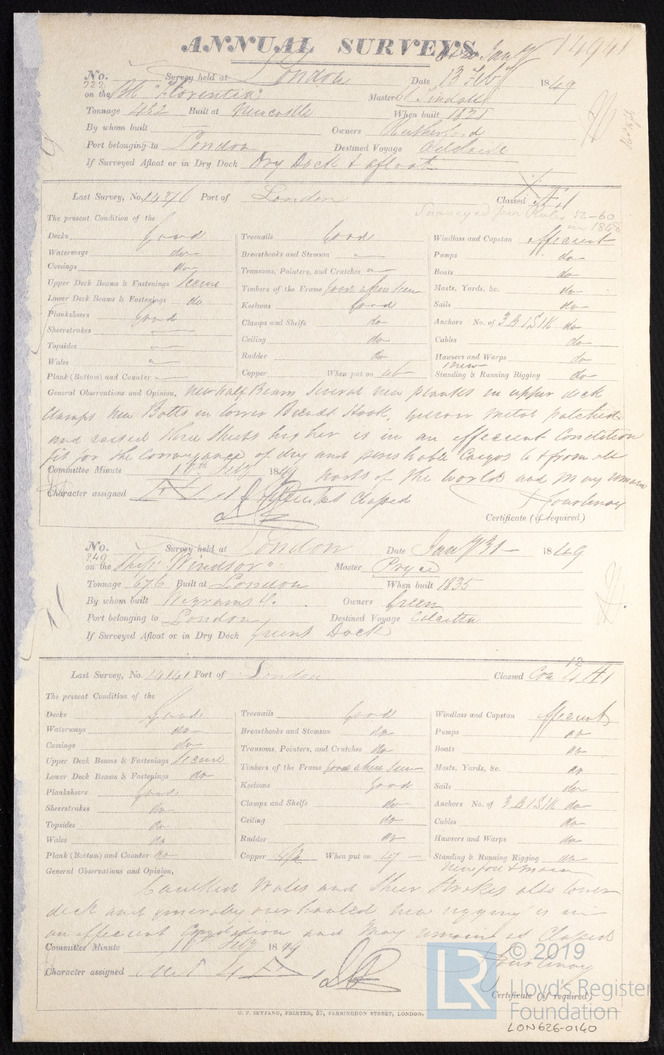 ANNUAL SURVEYS. 14941
No. 222 Survey held at London Date 13 Feby 1849
on the Bk "Florentia" Master Tindall
Tonnage 452 Built at Newcastle When built 1821
By whom built Owners Rutherford
Port belonging to London Destined Voyage Adelaide
If Surveyed Afloat or in Dry Dock Dry Dock & afloat
Last Survey, No. Port of London Classed Æ 1
The present Condition of the
Decks Good Treenails Good Windlass and Capstan efficient
Waterways do Breasthooks and Stemson Pumps do
Comings do Transoms, Pointers, and Crutches Boats do
Upper Deck Beams & Fastenings Secure Timbers of the Frame good where seen Masts, Yards, &c. do
Lower Deck Beams & Fastenings do Keelsons Good Sails do
Planksheers Good Clamps and Shelfs do Anchors No. of 3B 1S 1K do
Sheerstrakes Ceiling do Cables do
Topsides Rudder do Hawsers and Warps do
Wales Copper When put on Standing & Running Rigging do
Plank (Bottom) and Counter
General Observations and Opinion, new half Beam Several new planks in upper deck
Clamps New Bolts in lower Breast Hook, yellow metal patched
and raised three Sheets higher is in an efficient Condition
fit for the conveyance of dry and perishable Cargos to & from all
Committee Minute Feby 1849 parts of the world and may remain
Character assigned as Classed
Certificate (if required) Courtenay
No. 240 Survey held at London Date Jany 31 1849
on the Ship "Windsor" Master Pryce
Tonnage 676 Built at London When built 1835
By whom built Wigrams & Owners Green
Port belonging to London Destined Voyage Calcutta
If Surveyed Afloat or in Dry Dock Green's Dock
Last Survey, No. 14141 Port of London Classed Con 12 A1
The present Condition of the
Decks Good Treenails Good Windlass and Capstan Efficient
Waterways do Breasthooks and Stemson do Pumps do
Comings do Transoms, Pointers, and Crutches do Boats do
Upper Deck Beams & Fastenings Secure Timbers of the Frame good where seen Masts, Yards, &c. do
Lower Deck Beams & Fastenings do Keelsons Good Sails do
Planksheers Good Clamps and Shelfs do Anchors No. of 3B 1S 1K do
Sheerstrakes do Ceiling do Cables do
Topsides do Rudder do Hawsers and Warps do
Wales do Copper When put on 47 Standing & Running Rigging do
Plank (Bottom) and Counter do new fore & main
General Observations and Opinion,
Caulked Wales and Sheer Strakes also lower
deck and generally overhauled new rigging is in
an efficient Condition and may remain as Classed
Committee Minute Feby 1849
Character assigned Courtenay
Certificate (if required)
© 2019
LR Lloyd's Register
Foundation
LON626-0140
G. F. SEYFANG, PRINTER, 57, FARRINGDON STREET, LONDON.